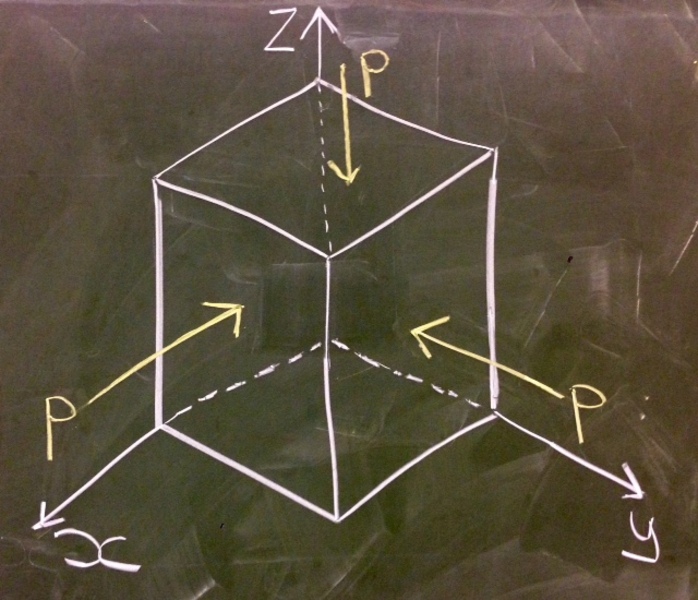 Z
P
P
P
x
y